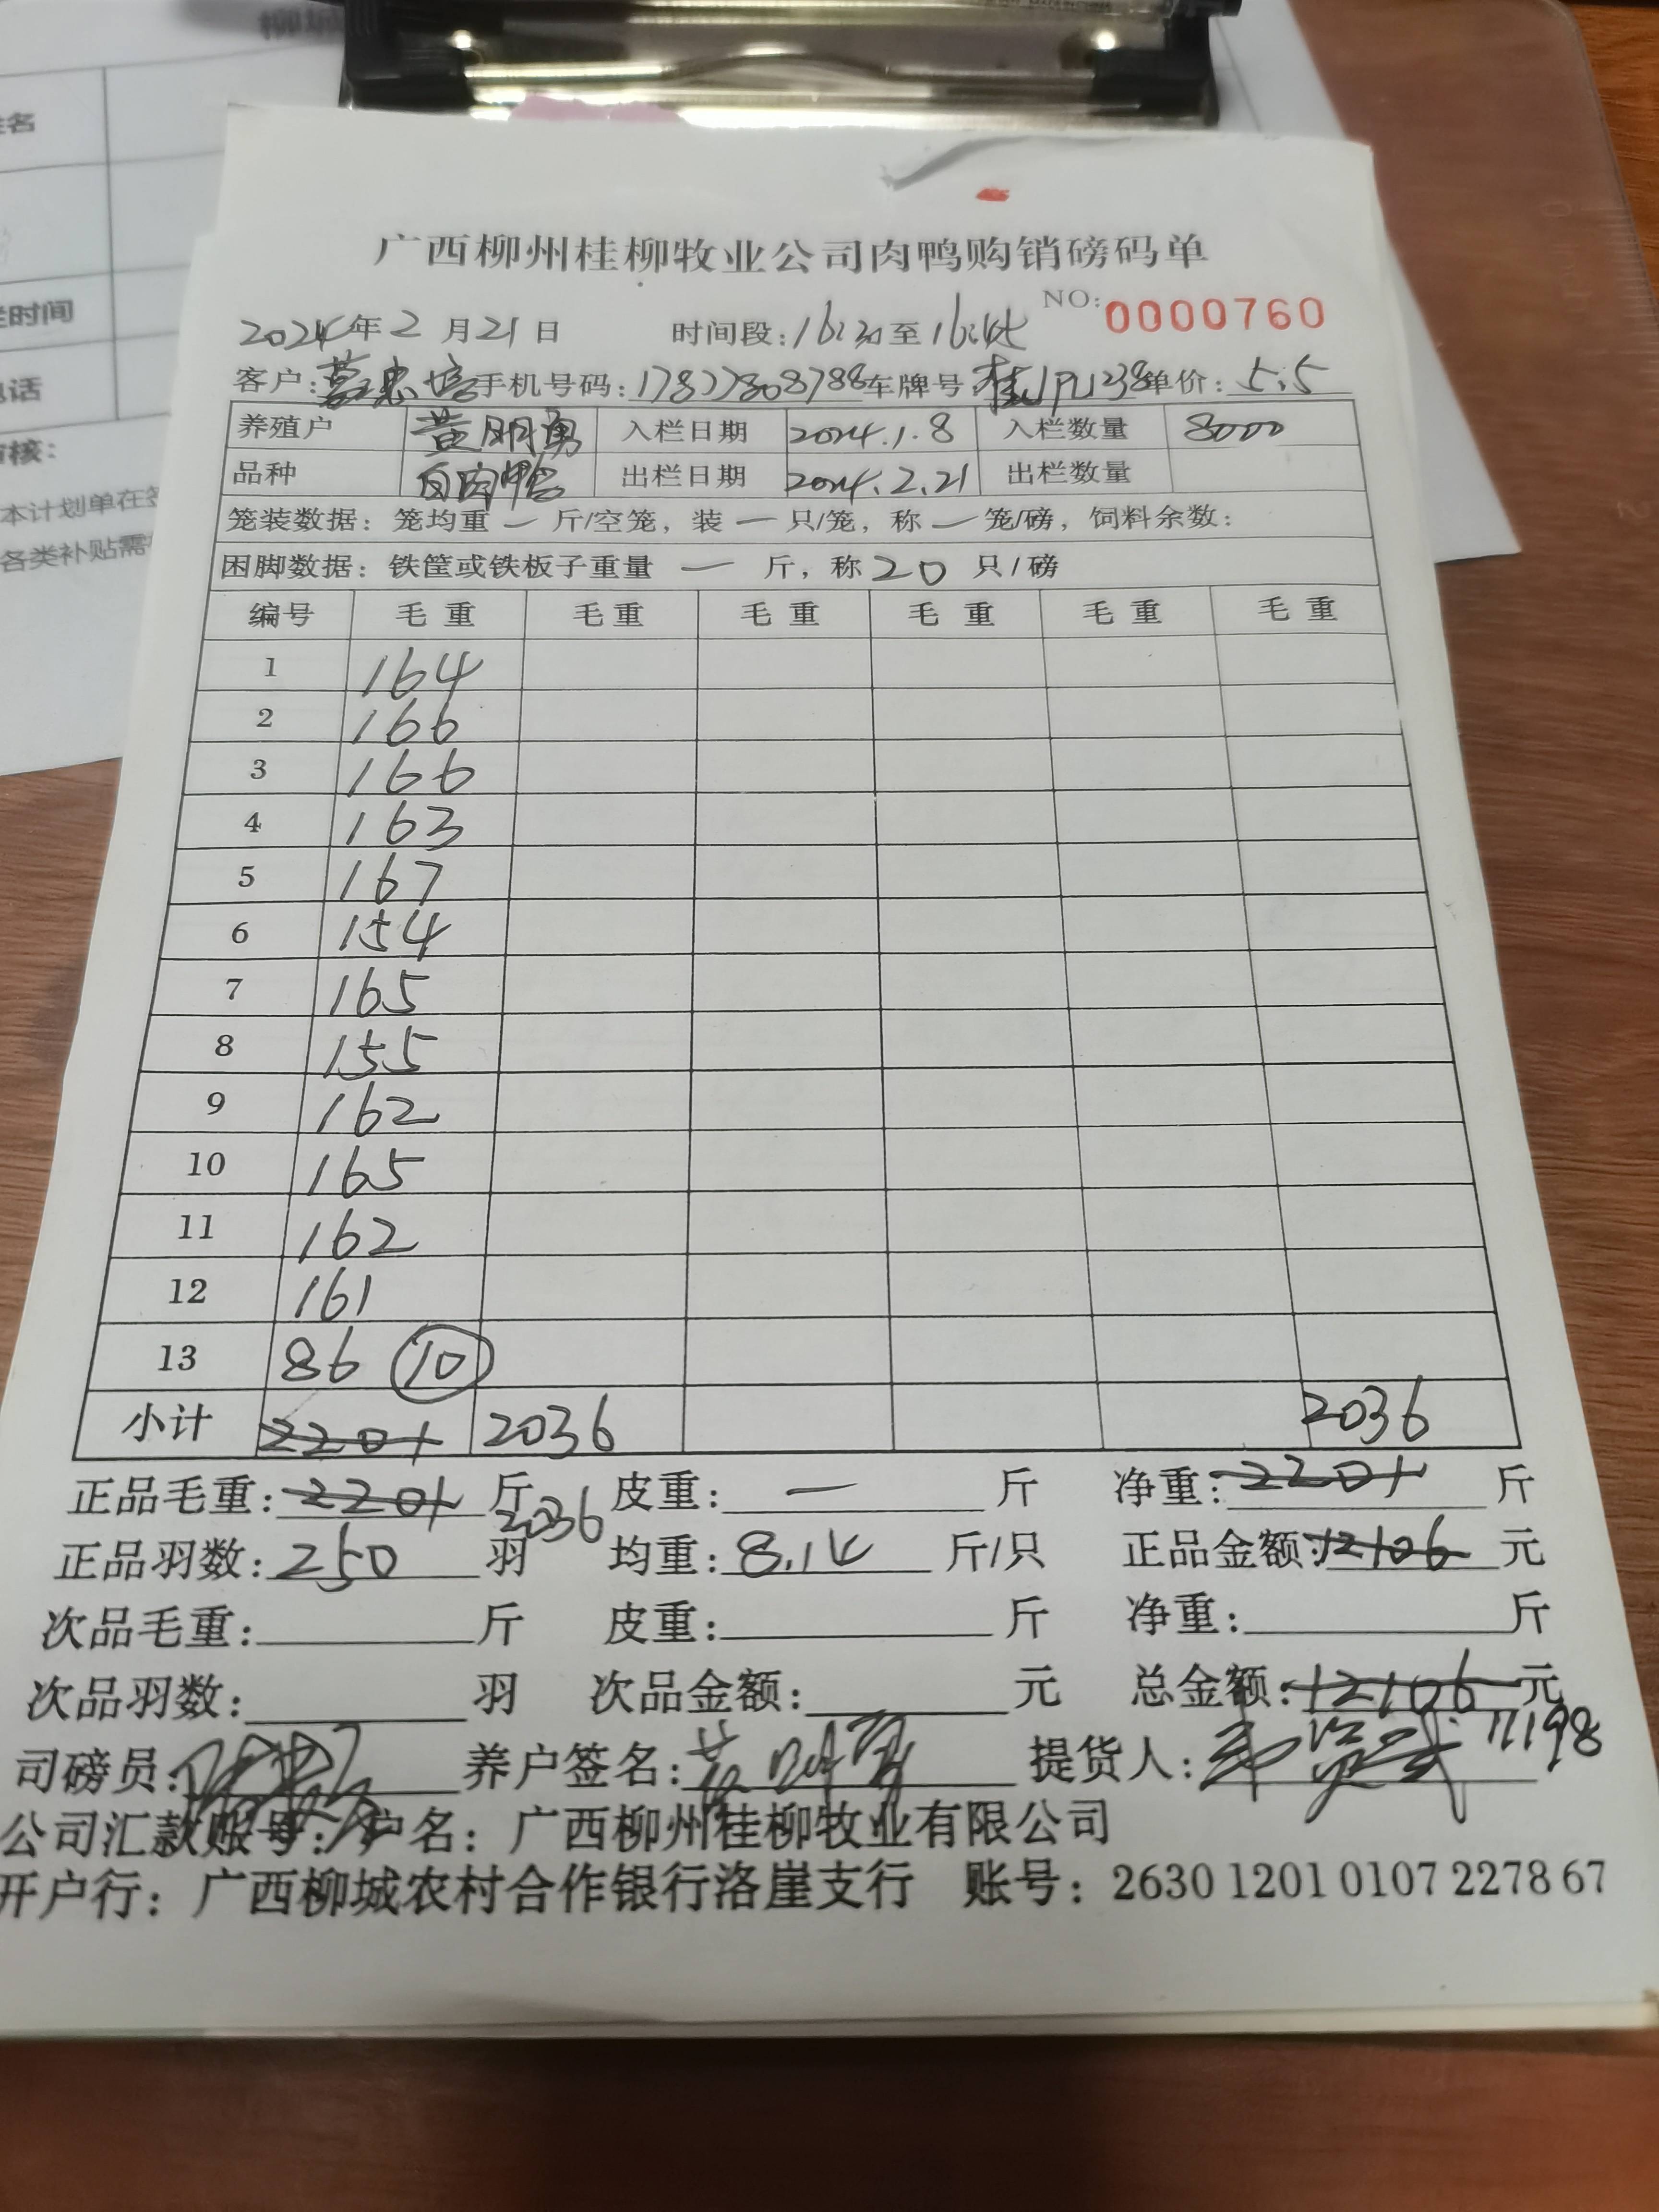 姓名
栏时间
电话
审核：
本计划单在签
各类补贴需
广西柳州桂柳牧业公司肉鸭购销磅码单
NO: 0000760
2024年2月21日 时间段: 16:30至
客户: 手机号码: 17877808788 车牌号: 单价: 5.5
养殖户 黄明勇 入栏日期 2024.1.8 入栏数量 8000
品种 白肉鸭 出栏日期 2024.2.21 出栏数量
笼装数据：笼均重 一 斤/空笼，装 一 只/笼，称 一 笼/磅，饲料余数：
困脚数据：铁筐或铁板子重量 一 斤，称 20 只/磅
编号 毛重 毛重 毛重 毛重 毛重 毛重
1 164
2 166
3 166
4 163
5 167
6 154
7 165
8 155
9 162
10 165
11 162
12 161
13 86 10
小计 2201 2036 2036
正品毛重: 2201 斤 2036 皮重: 一 斤 净重: 2201 斤
正品羽数: 250 羽 均重: 8.14 斤/只 正品金额: 12106 元
次品毛重: 斤 皮重: 斤 净重: 斤
次品羽数: 羽 次品金额: 元 总金额: 12106 元
司磅员: 养户签名: 黄明勇 提货人: 11198
公司汇款账号: 户名：广西柳州桂柳牧业有限公司
开户行：广西柳城农村合作银行洛崖支行 账号：2630 1201 0107 2278 67